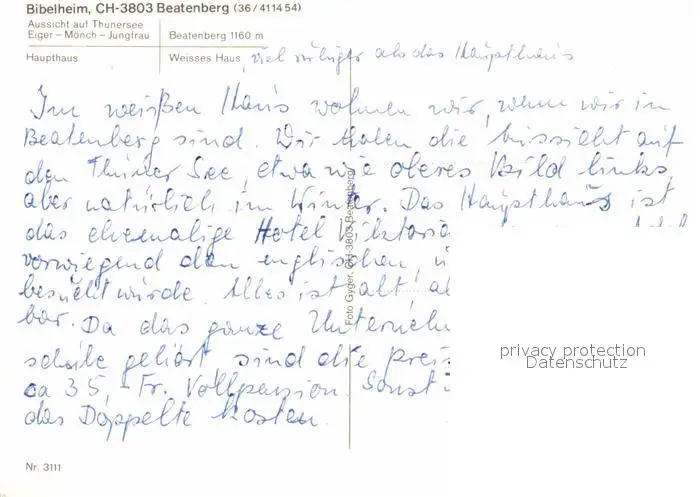 Bibelheim, CH-3803 Beatenberg (36/4114 54)
Aussicht auf Thunersee
Eiger – Mönch – Jungfrau
Beatenberg 1160 m
Haupthaus
Weisses Haus, viel ruhiger als das Haupthaus
Im weißen Haus wohnen wir, wenn wir in
Beatenberg sind. Wir haben die Aussicht auf
den Thuner See, etwa wie oberes Bild links,
aber natürlich im Winter. Das Haupthaus ist
das ehemalige Hotel Viktoria
vorwiegend den englischen
besucht würde. Alles ist alt,
bar. Da das ganze
gehört, sind die Prei
ca 35,- Fr. Vollpension. Sonst
das Doppelte kosten.
Foto Gyger, CH-3803 Beatenberg
privacy protection
Datenschutz
Nr. 3111